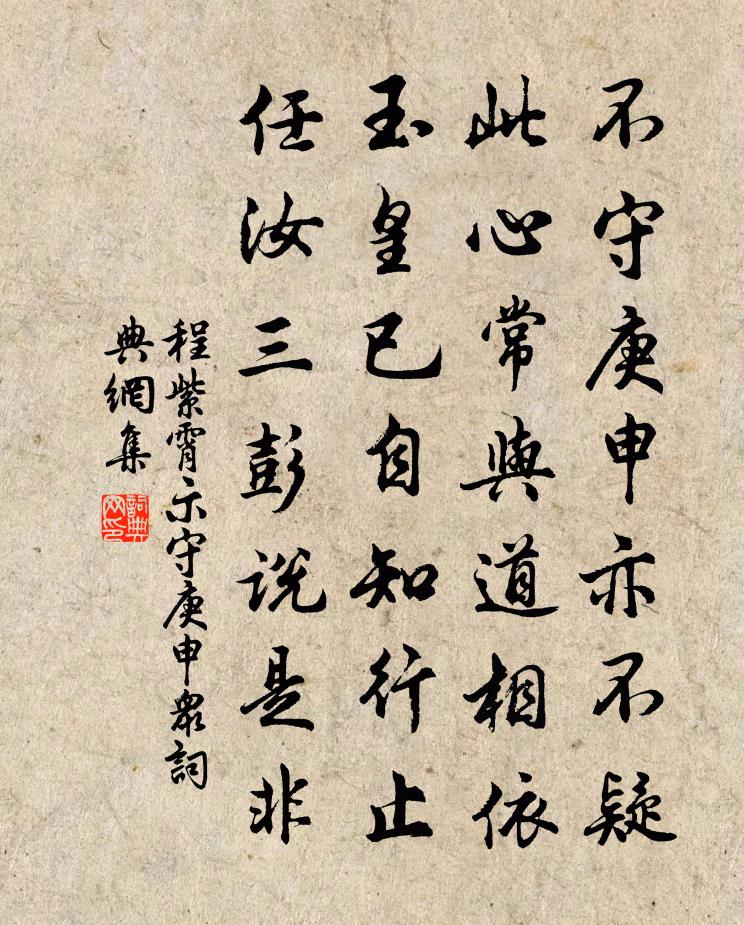 不守庚申亦不疑
此心常與道相依
玉皇已自知行止
任汝三彭說是非
程紫霄示守庚申眾詞
典網集
詞典網印